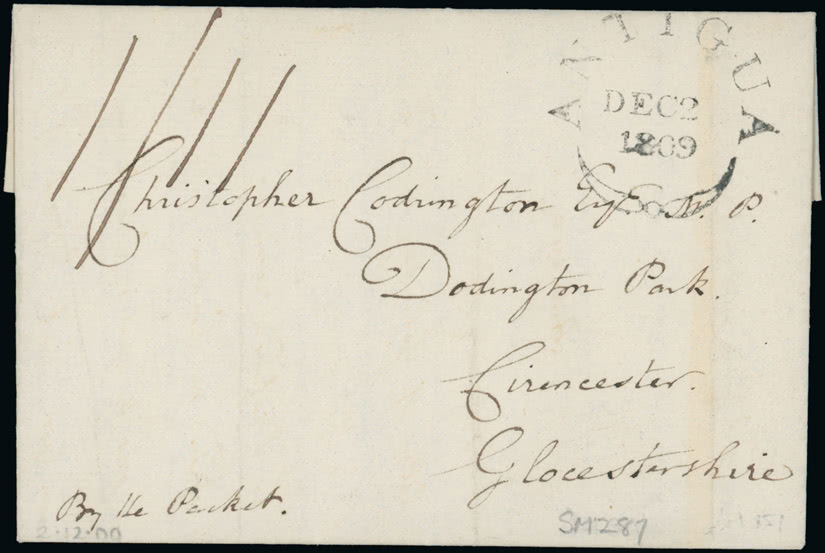 ANTIGUA
DEC 2
1809
Christopher Codrington Esqr. M. P.
Dodington Park.
Cirencester.
Glocestershire
By the Packet.
2·12·09
SM287